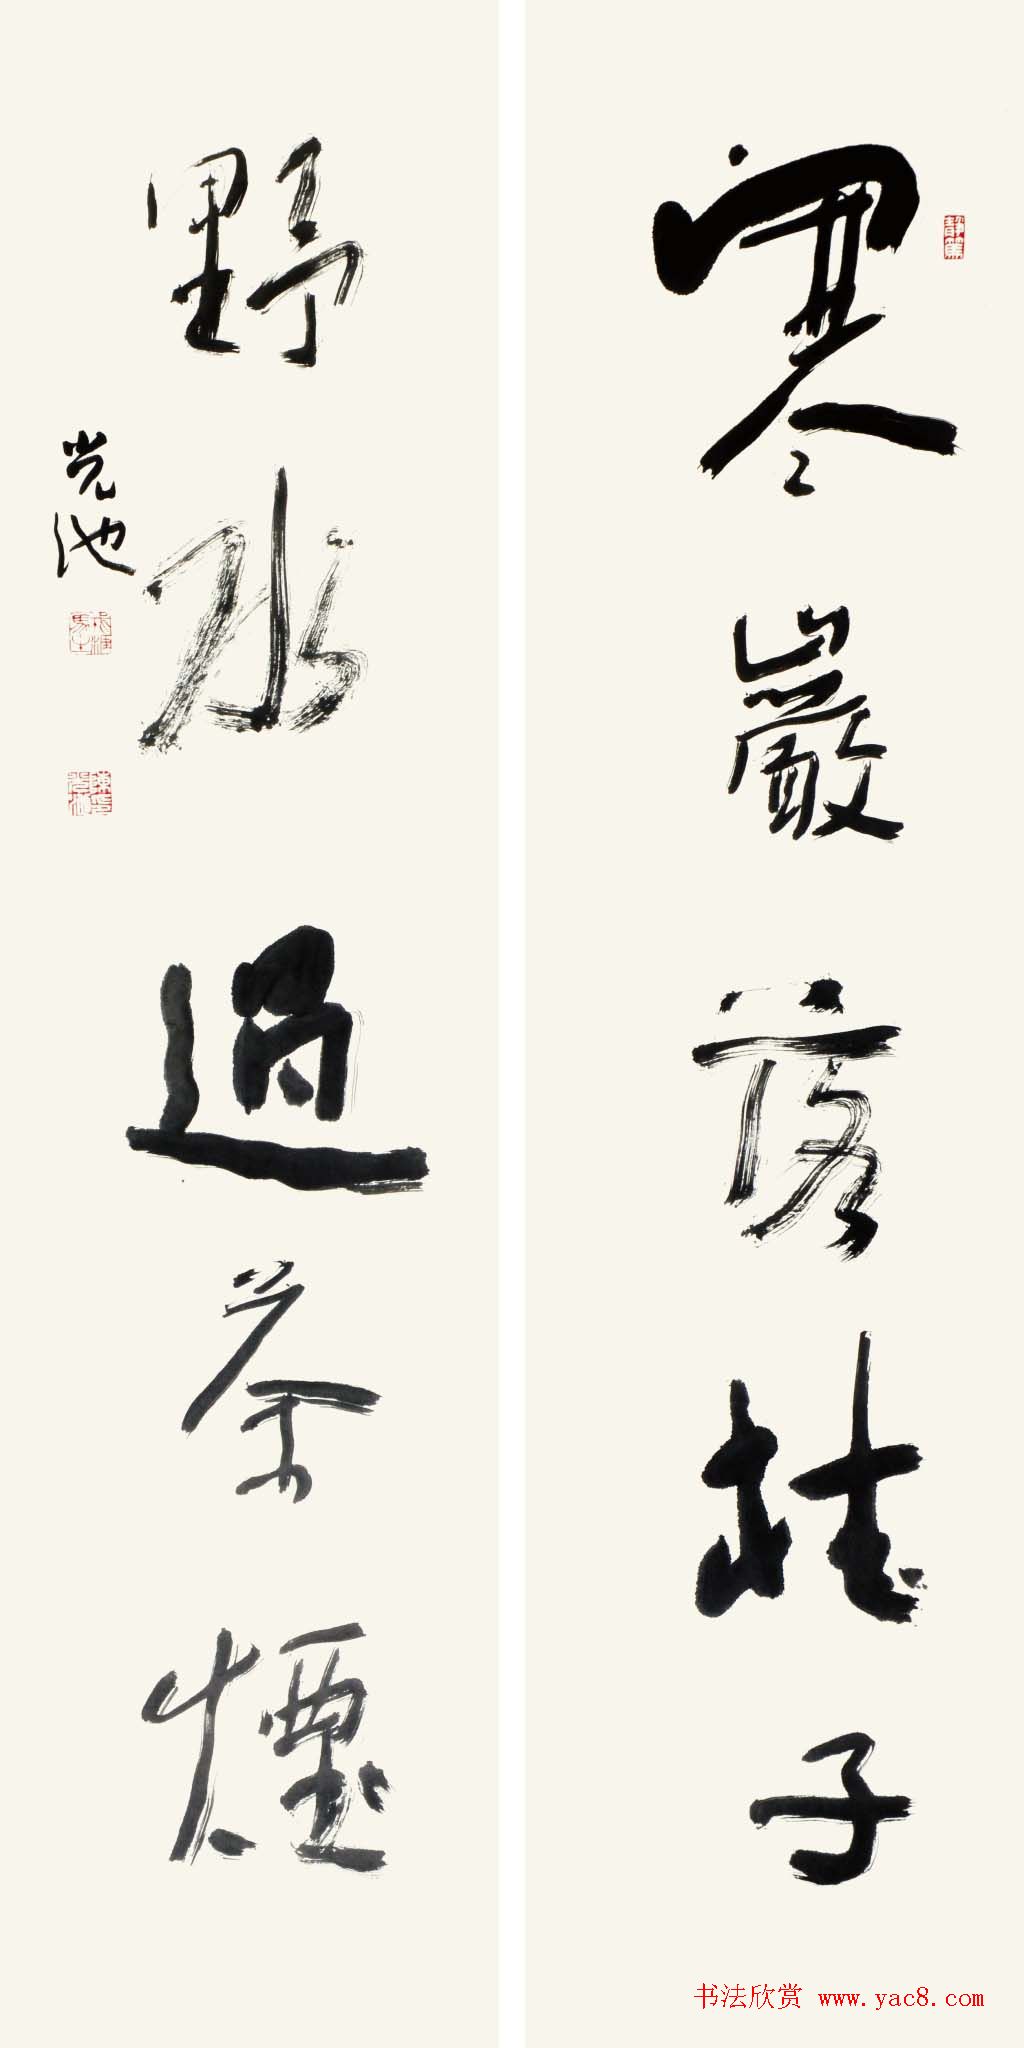 寒巖落桂子
野水過茶煙
光池
静篤
书法欣赏 www.yac8.com